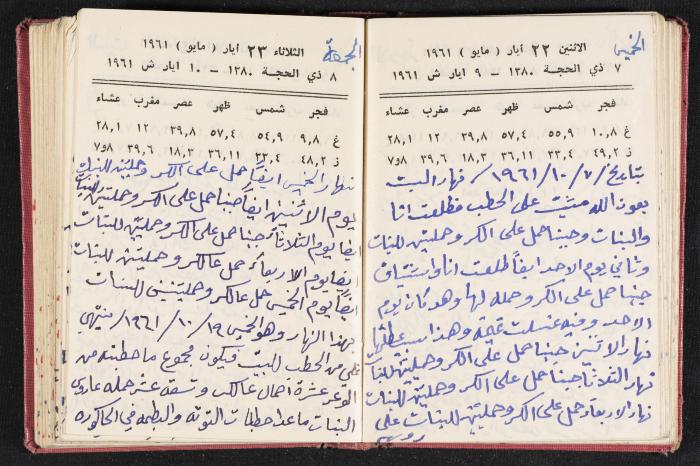 الخميس
الاثنين ٢٢ أيار ( مايو ) ١٩٦١
٧ ذي الحجة ١٣٨٠ — ٩ ايار ش ١٩٦١
فجر شمس ظهر عصر مغرب عشاء
غ ١٠,٨ ٥٥,٩ ٥٧,٤ ٣٩,٨ ١٢ ٢٨,١
ز ٤٩,٢ ٣٣,٤ ٣٦,١١ ١٨,٣ ٣٩,٦ ٨و٧
بتاريخ ٧ / ١٠ / ١٩٦١ / نهار السبت
بعون الله مشيت على الحطب فطلعت انا
والبنات وجبنا حمل على الكر وحملتين للبنات
وثاني يوم الاحد ايضاً طلعت انا
جبنا حمل على الكر وحمله لها وهو كان يوم
الاحد وفيه غسلت وهذا
نهار الاثنين جبنا حمل على الكر وحملتين للبنات
نهار الثلاثا جبنا حمل على الكر وحملتين للبنات
نهار الاربعاء حمل على الكر وحملتين للبنات على
الجمعة
الثلاثاء ٢٣ أيار ( مايو ) ١٩٦١
٨ ذي الحجة ١٣٨٠ — ١٠ ايار ش ١٩٦١
فجر شمس ظهر عصر مغرب عشاء
غ ٩,٨ ٥٤,٩ ٥٧,٤ ٣٩,٨ ١٢ ٢٨,١
ز ٤٨,٢ ٣٣,٤ ٣٦,١١ ١٨,٣ ٣٩,٦ ٨و٧
نهار الخميس ايضاً حمل على الكر وحملتين للبنات
يوم الاثنين ايضاً جبنا حمل على الكر وحملتين للبنات
ايضاً يوم الثلاثاء جبنا حمل على الكر وحملتين للبنات
ايضاً يوم الاربعاء حمل عالكر وحملتين للبنات
ايضاً يوم الخميس حمل عالكر وحملتين للبنات
بهذا النهار وهو الخميس ١٩ / ١٠ / ١٩٦١ / ننتهي
من الحطب للبيت فيكون مجموع ما حطبته من
الوعر عشرة احمال عالكر وتسعة عشر حمله عاروس
البنات ماعدا حطبات التوته والبطمه في الحاكوره